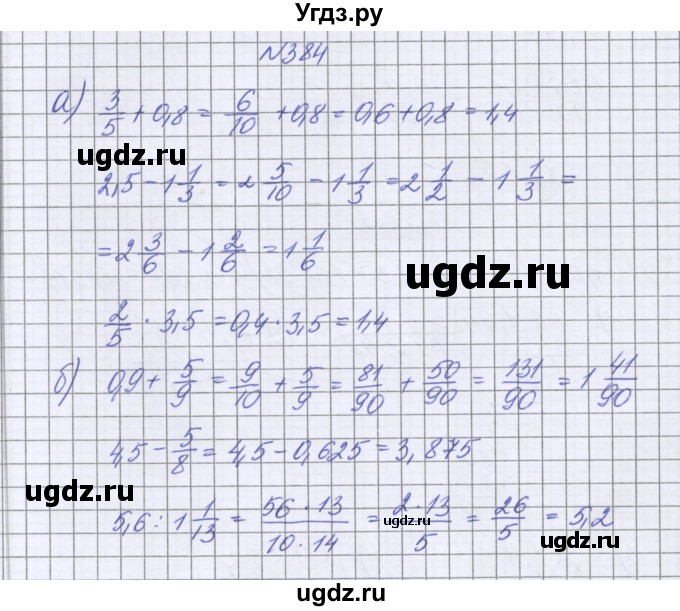 Угдз.ру
№384
а) 3/5 + 0,8 = 6/10 + 0,8 = 0,6 + 0,8 = 1,4
ugdz.ru
2,5 − 1 1/3 = 2 5/10 − 1 1/3 = 2 1/2 − 1 1/3 =
= 2 3/6 − 1 2/6 = 1 1/6
ugdz.ru
2/5 · 3,5 = 0,4 · 3,5 = 1,4
б) 0,9 + 5/9 = 9/10 + 5/9 = 81/90 + 50/90 = 131/90 = 1 41/90
4,5 − 5/8 = 4,5 − 0,625 = 3,875
ugdz.ru
5,6 : 1 1/13 = 56 · 13/10 · 14 = 2 · 13/5 = 26/5 = 5,2
ugdz.ru
ugdz.ru
ugdz.ru